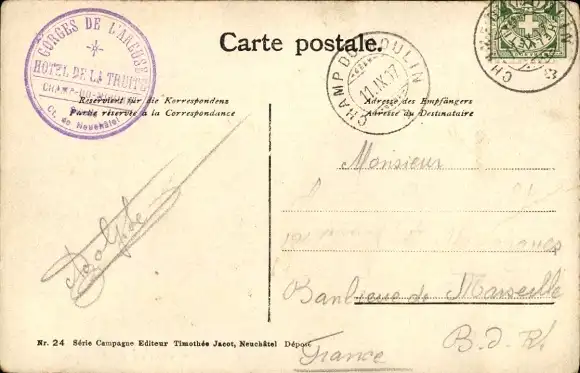 GORGES DE L'AREUSE
HÔTEL DE LA TRUITE
CHAMP-DU-MOULIN
Ct. de Neuchâtel
Carte postale.
CHAMP DU MOULIN
11.IX.07
Reserviert für die Korrespondenz
Partie réservée à la Correspondance
Adresse des Empfängers
Adresse du Destinataire
Monsieur
Adolphe
Banlieue de Marseille
B. d. R.
France
Nr. 24 Série Campagne Editeur Timothée Jacot, Neuchâtel Déposé